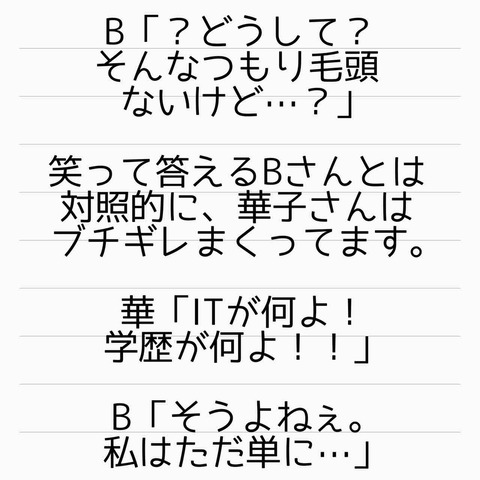 B「？どうして？
そんなつもり毛頭
ないけど…？」
笑って答えるBさんとは
対照的に、華子さんは
ブチギレまくってます。
華「ITが何よ！
学歴が何よ！！」
B「そうよねぇ。
私はただ単に…」